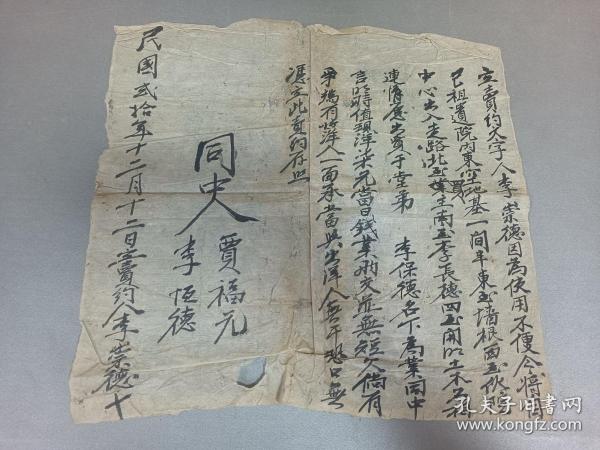 立賣約文字人李崇德因為使用不便今將自
己祖遺院內東空地基一間半東至墙根西至
中心出入走路北至業主南至李長德四至開明土木
連情愿出賣于堂弟 李保德名下為業同中
言明時值現洋柒元當日錢業兩交並無短欠倘有
爭端有將洋人一面承當與出洋人無干恐口無
憑立此賣約存照
同中人 賈福元
李恒德
民國貳拾年十二月十二日立賣約人李崇德十
孔夫子旧书网
www.kongfz.com